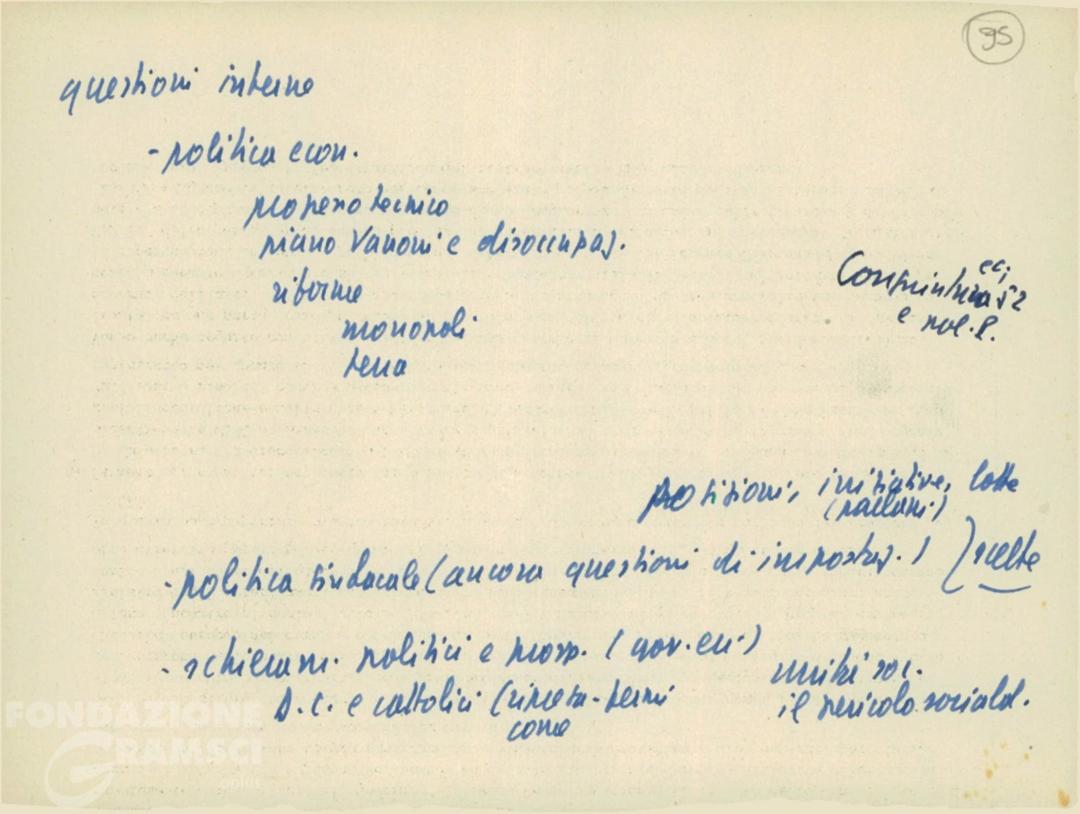 95
questioni interne
- politica econ.
progresso tecnico
piano Vanoni e disoccupaz.
riforme
monopoli
terra
e pol. P.
posizioni, iniziative, lotte
- politica sindacale (ancora questioni di impostaz.) } scelte
- schieram. politici e prosp. (gov. ecc.)
unità soc.
D.C. e cattolici (
il pericolo sociald.
come
FONDAZIONE
GRAMSCI